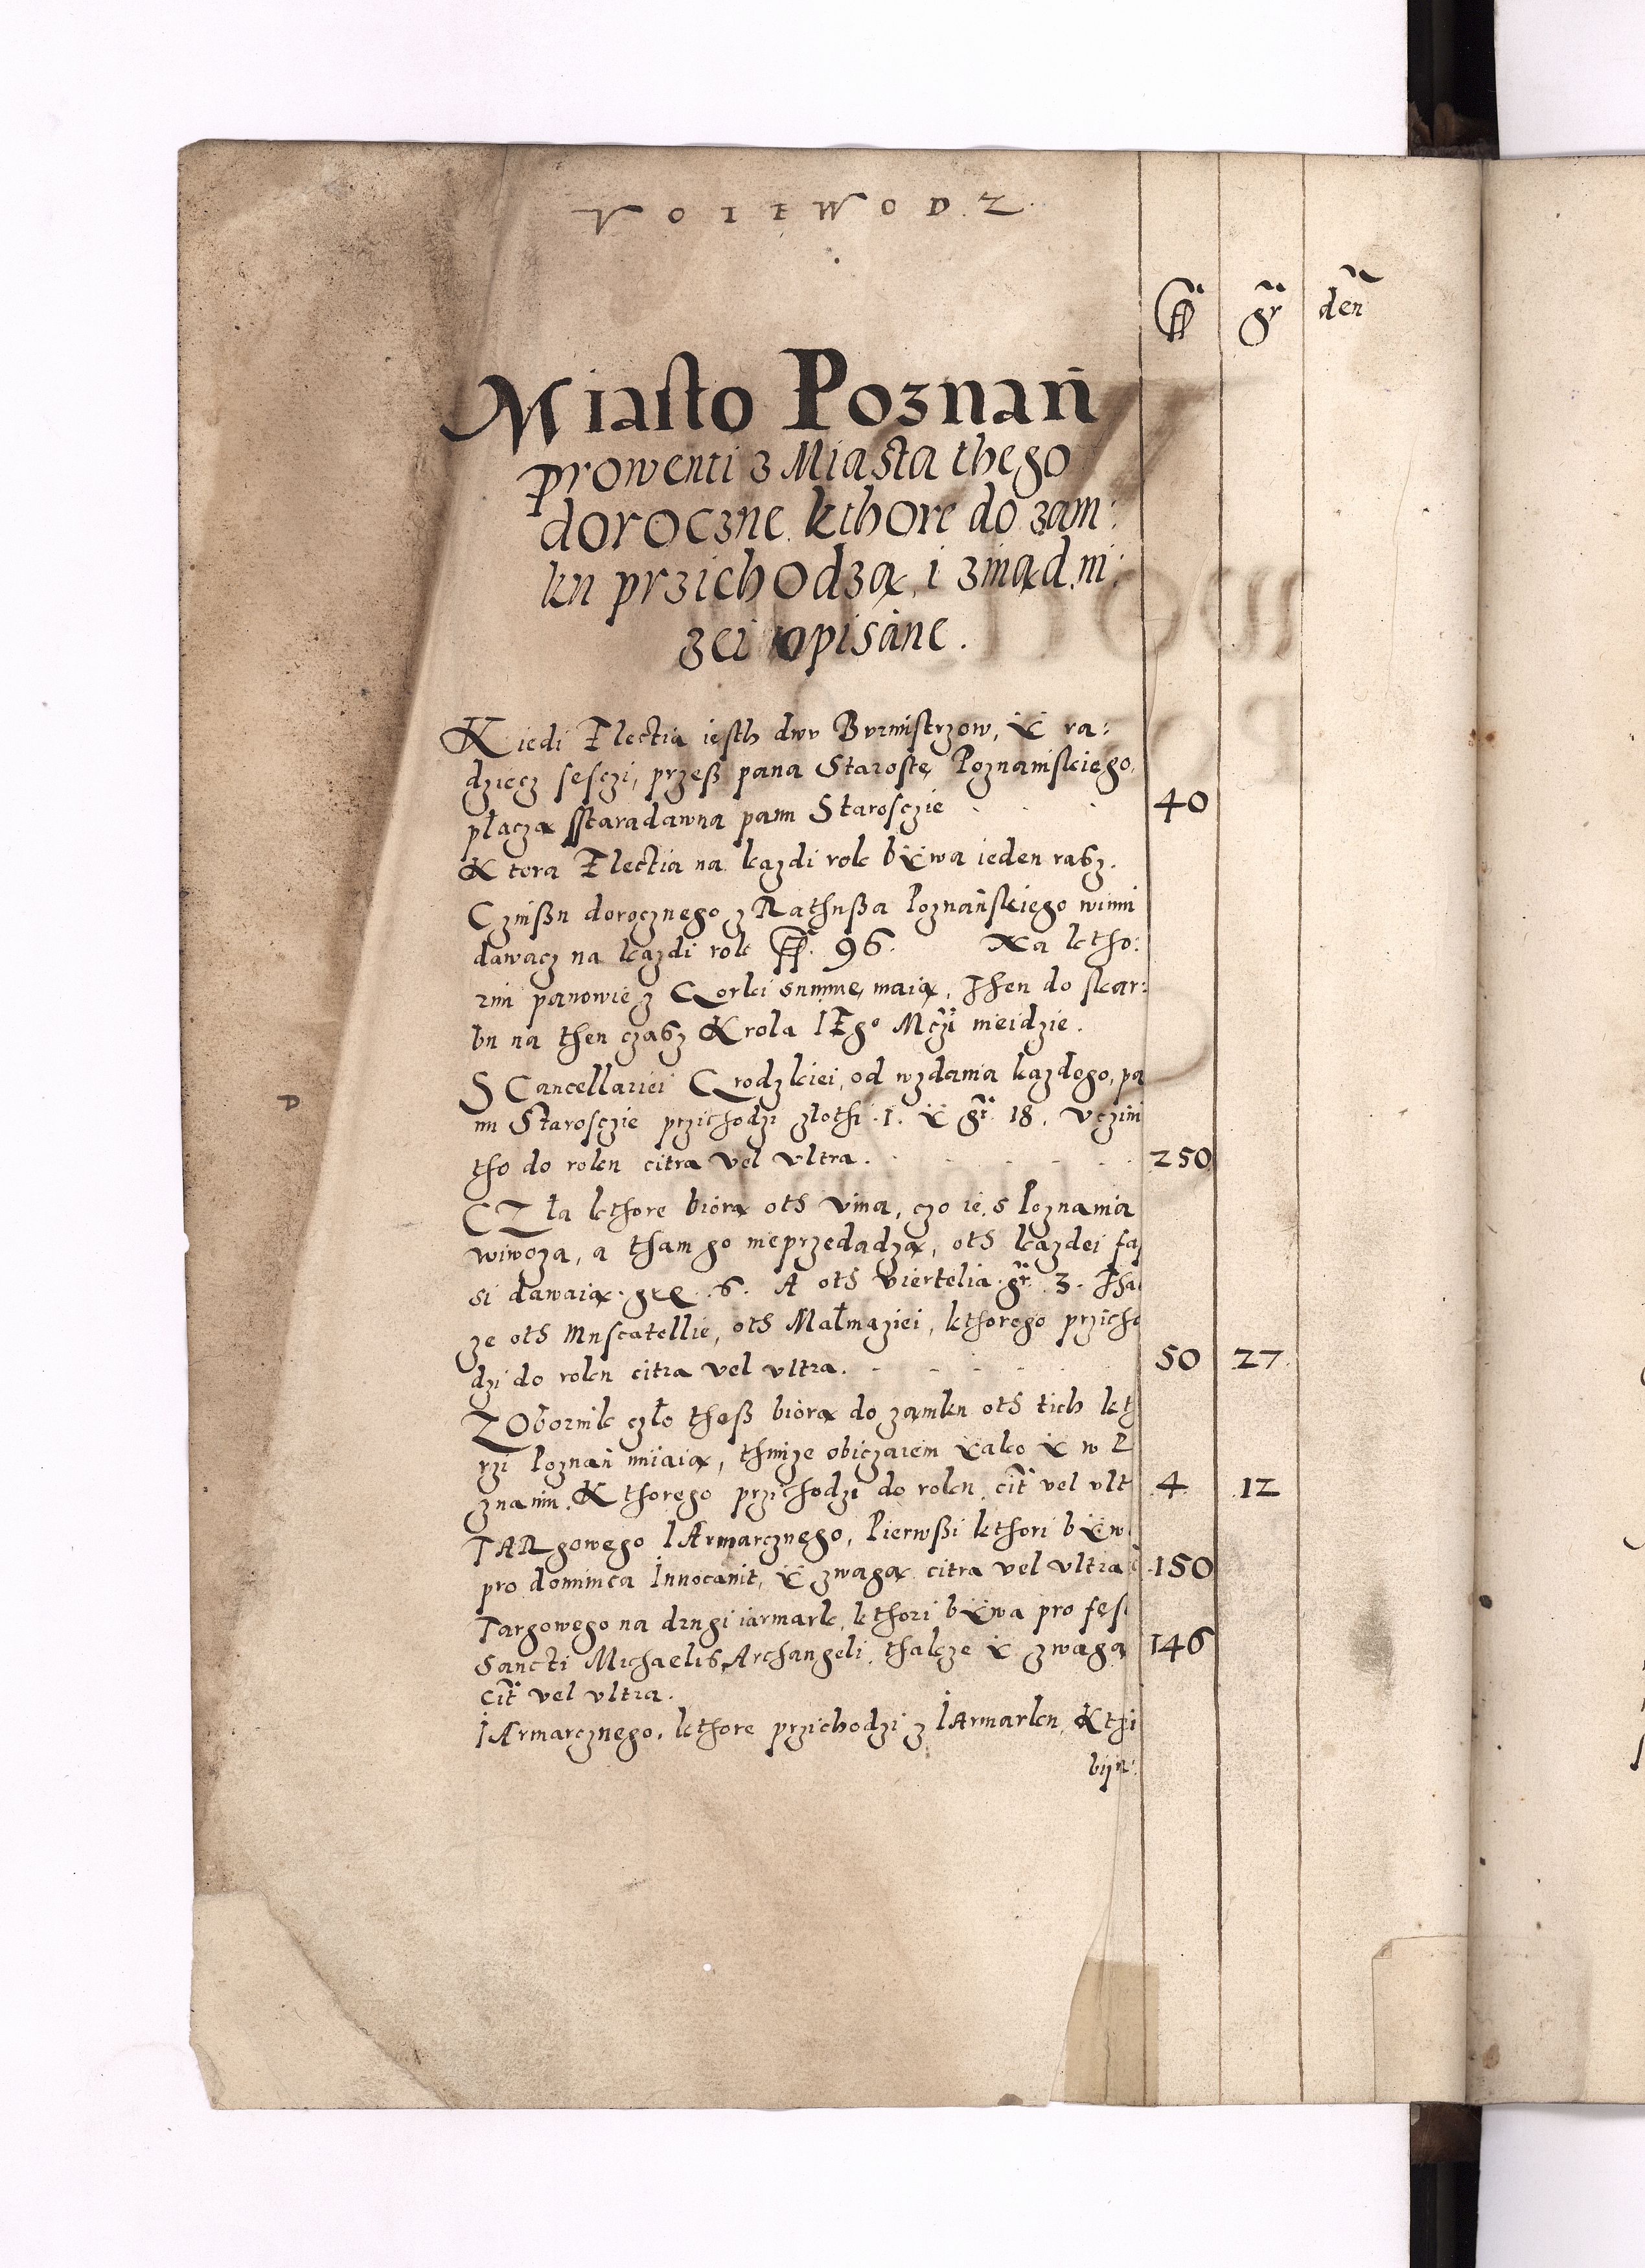 VOIEWODZ.
fl gr den
Miasto Poznań
prowenti z Miasta thego
doroczne kthore do zam:
ku przichodzą, i zinąd ni:
zei opisane.
Kiedi Electia iesth dwv Bvrmistrzow, Ÿ ra:
dziecz sesczi, przeß pana Starostę Poznanskiego,
płaczą sstaradawna panu Starosczie 40
Ktora Electia na kazdi rok bÿwa ieden rasz.
Czinßu dorocznego z Rathußa Poznańskiego winni
dawacz na kazdi rok fl. 96. Na ktho:
rim panowie z Gorki summę maią, Then do skar:
bu na then czasz Krola IEgo Mczi nieidzie.
S Cancellariei Grodzkiei, od wzdania kazdego, pa
nu Starosczie przichodzi złothi .1. Ÿ gr. 18. vczini
tho do roku citra vel vltra. 250
CZła kthore biorą ots vina, czo ie, s Poznania
wiwozą, a tham go nieprzedadzą, ots kazdei fa
si dawaią gr. 6. A ots viertelia gr. 3. Tha
ze ots Muscatellie, ots Małmaziei, kthorego przicho
dzi do roku citra vel vltra. 50 27
Z Obornik czło theß biorą do zamku ots tich kth
rzi Poznań miiaią, thimze obiczaiem ÿako ÿ w P
znaniu. Kthorego przichodzi do roku cit vel vlt 4 12
TARgowego IArmarcznego, Pierwßi kthori bÿw
pro dominica Invocavit, Ÿ zwagą citra vel vltra 150
Targowego na drugi iarmark, kthori bÿwa pro fes
Sancti Michaelis Archangeli, thakze ÿ zwagą 146
cit vel vltra.
IArmarcznego, kthore przichodzi z IArmarku, Kthi
D